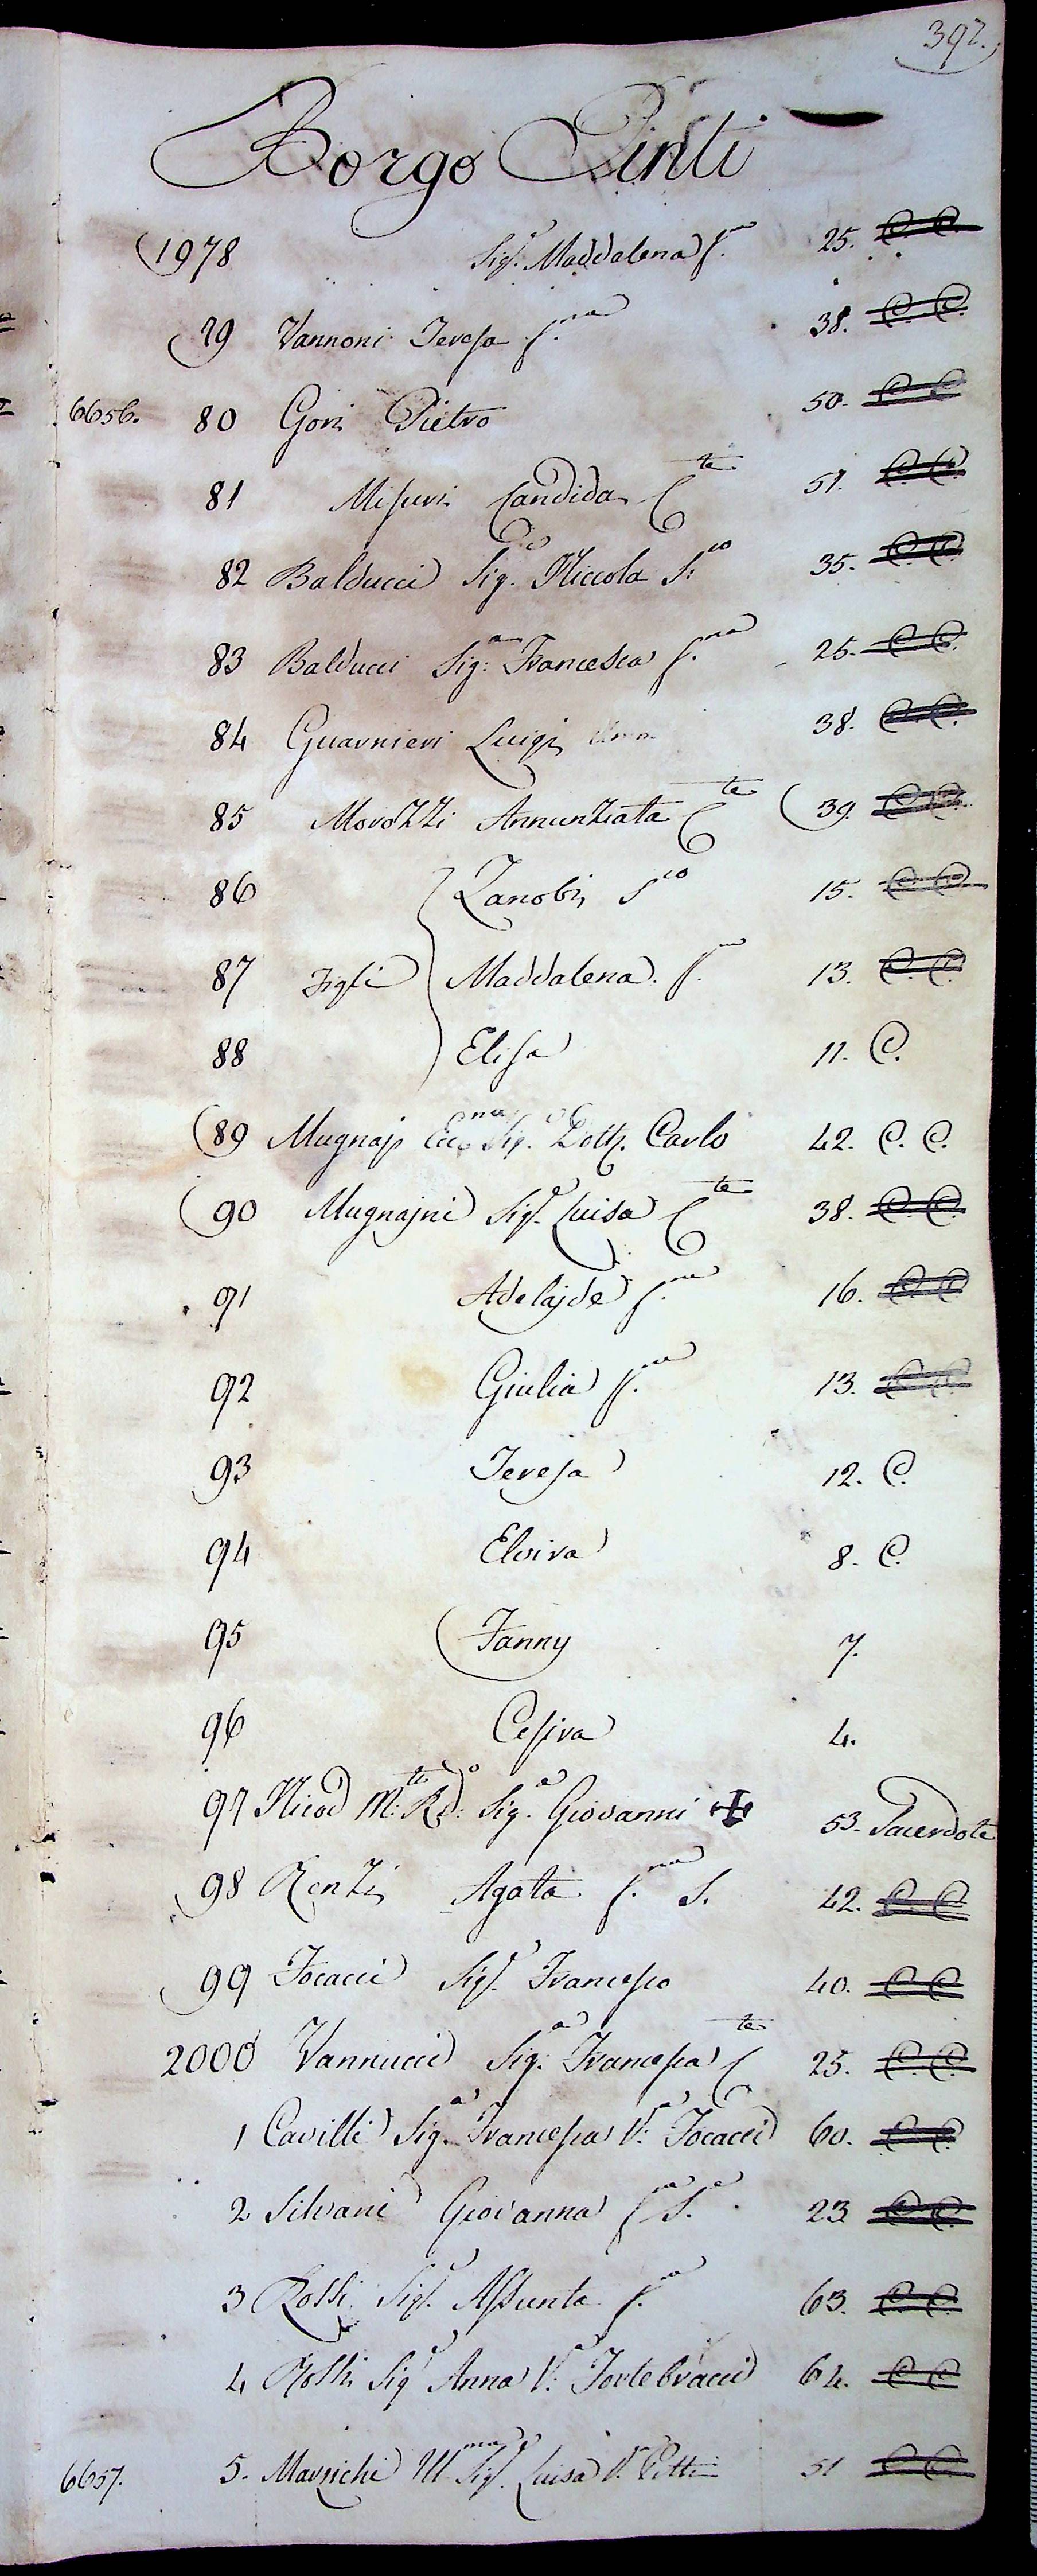 392.
Borgo Pinti
1978 Sig.ra Maddalena f.na 25. C. C.
79 Vannoni Teresa f.na 38. C. C.
6656. 80 Gori Pietro 50. C. C.
81 Misuri Candida C.te 51. C. C.
82 Balducci Sig.e Niccola S.co 35. C. C.
83 Balducci Sig.a Francesca f.na 25. C. C.
84 Guarnieri Luigi 38. C. C.
85 Morozzi Annunziata C.te 39. C. C.
86 Zanobi S.co 15. C. C.
87 Figli Maddalena f.na 13. C. C.
88 Elisa 11. C.
89 Mugnaj Sig. Dott. Carlo 42. C. C.
90 Mugnajni Sig.a Luisa C.te 38. C. C.
91 Adelajde f.na 16. C. C.
92 Giulia f.na 13. C. C.
93 Teresa 12. C.
94 Elvira 8. C.
95 Fanny 7.
96 Cesira 4.
97 M.to R.do Sig. Giovanni 53. Sacerdote
98 Renzi Agata f.na S. 42. C. C.
99 Focacci Sig.r Francesco 40. C. C.
2000 Vannucci Sig.a Francesca C.te 25. C. C.
1 Cavilli Sig.a Francesca V.a Focacci 60. C. C.
2 Silvani Giovanna f.na S.a 23 C. C.
3 Rossi Sig.a Assunta f.na 63. C. C.
4 Rossi Sig.a Anna V.a Fortebracci 64. C. C.
6657. 5. Ill.ma Sig.a Luisa V.a 51 C. C.